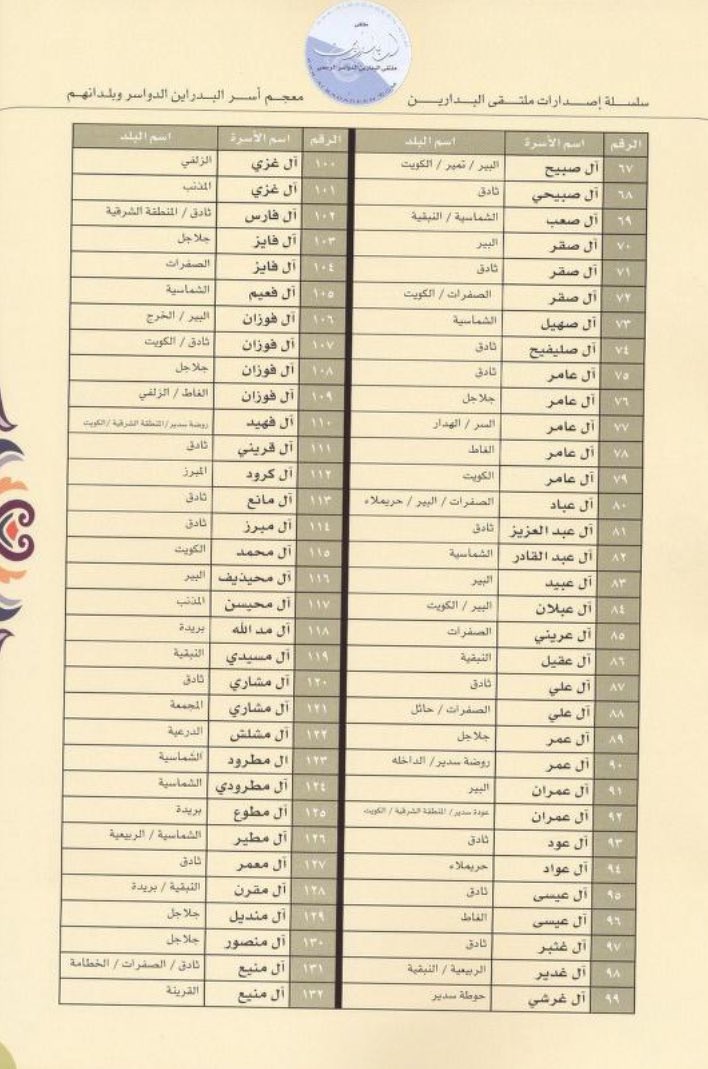 ملتقى
ملتقى البدارين الدواسر الرسمي
WWW.ALBADAREEN.COM
سلسلة إصدارات ملتقى البدارين
معجم أسر البدراين الدواسر وبلدانهم
الرقم اسم الأسرة اسم البلد
٦٧ آل صبيح البير / تمير / الكويت
٦٨ آل صبيحي ثادق
٦٩ آل صعب الشماسية / النبقية
٧٠ آل صقر البير
٧١ آل صقر ثادق
٧٢ آل صقر الصفرات / الكويت
٧٣ آل صهيل الشماسية
٧٤ آل صليفيح ثادق
٧٥ آل عامر ثادق
٧٦ آل عامر جلاجل
٧٧ آل عامر السر / الهدار
٧٨ آل عامر الغاط
٧٩ آل عامر الكويت
٨٠ آل عباد الصفرات / البير / حريملاء
٨١ آل عبد العزيز ثادق
٨٢ آل عبد القادر الشماسية
٨٣ آل عبيد البير
٨٤ آل عبلان البير / الكويت
٨٥ آل عريني الصفرات
٨٦ آل عقيل النبقية
٨٧ آل علي ثادق
٨٨ آل علي الصفرات / حائل
٨٩ آل عمر جلاجل
٩٠ آل عمر روضة سدير / الداخله
٩١ آل عمران البير
٩٢ آل عمران عودة سدير / المنطقة الشرقية / الكويت
٩٣ آل عود ثادق
٩٤ آل عواد حريملاء
٩٥ آل عيسى ثادق
٩٦ آل عيسى الغاط
٩٧ آل غثبر ثادق
٩٨ آل غدير الربيعية / النبقية
٩٩ آل غرشي حوطة سدير
الرقم اسم الأسرة اسم البلد
١٠٠ آل غزي الزلفي
١٠١ آل غزي المذنب
١٠٢ آل فارس ثادق / المنطقة الشرقية
١٠٣ آل فايز جلاجل
١٠٤ آل فايز الصفرات
١٠٥ آل فعيم الشماسية
١٠٦ آل فوزان البير / الخرج
١٠٧ آل فوزان ثادق / الكويت
١٠٨ آل فوزان جلاجل
١٠٩ آل فوزان الغاط / الزلفي
١١٠ آل فهيد روضة سدير / المنطقة الشرقية / الكويت
١١١ آل قريني ثادق
١١٢ آل كرود المبرز
١١٣ آل مانع ثادق
١١٤ آل مبرز ثادق
١١٥ آل محمد الكويت
١١٦ آل محيذيف البير
١١٧ آل محيسن المذنب
١١٨ آل مد الله بريدة
١١٩ آل مسيدي النبقية
١٢٠ آل مشاري ثادق
١٢١ آل مشاري المجمعة
١٢٢ آل مشلش الدرعية
١٢٣ ال مطرود الشماسية
١٢٤ آل مطرودي الشماسية
١٢٥ آل مطوع بريدة
١٢٦ آل مطير الشماسية / الربيعية
١٢٧ آل معمر ثادق
١٢٨ آل مقرن النبقية / بريدة
١٢٩ آل منديل جلاجل
١٣٠ آل منصور جلاجل
١٣١ آل منيع ثادق / الصفرات / الخطامة
١٣٢ آل منيع القرينة